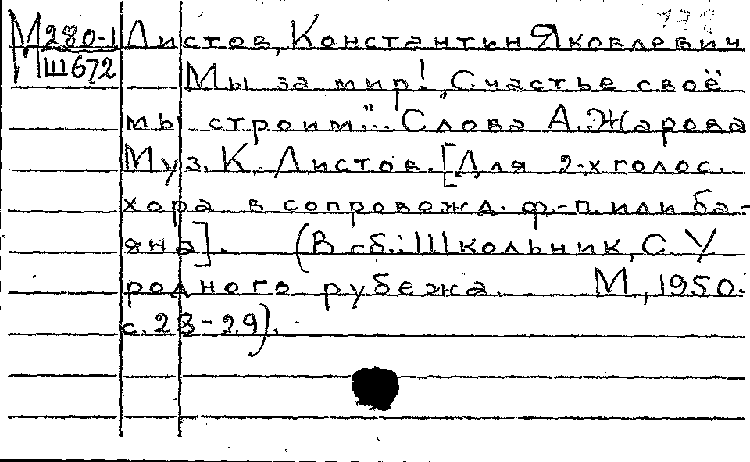 М 280-1 Листов, Константин Яковлевич
Ш672 Мы за мир! "Счастье своё
мы строим"... Слова А. Жарова
Муз. К. Листов. [Для 2-х голос.
хора в сопровожд. ф.-п. или ба-
яна]. (В сб.: Школьник, С. У
родного рубежа. М., 1950.
с. 28-29).